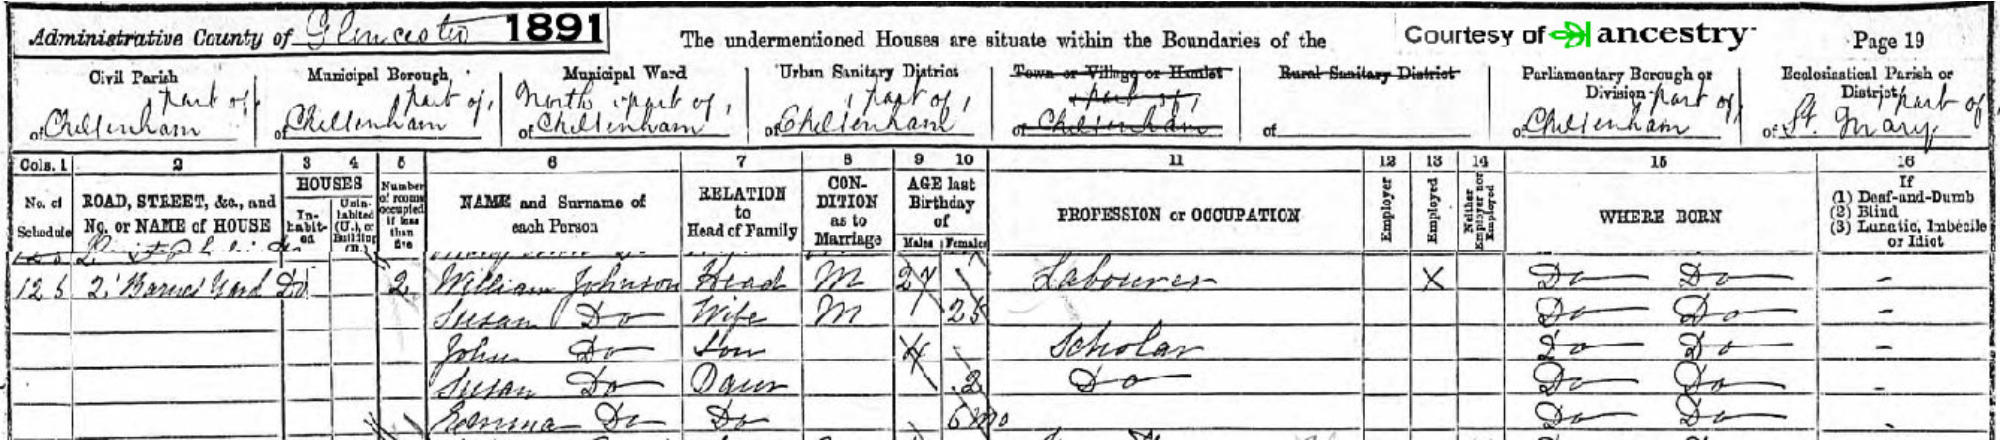 Administrative County of Gloucester 1891 The undermentioned Houses are situate within the Boundaries of the Courtesy of ancestry Page 19
Civil Parish Municipal Borough Municipal Ward Urban Sanitary District Town or Village or Hamlet Rural Sanitary District Parliamentary Borough or Division Ecclesiastical Parish or District
part of part of North part of part of part of part of part of
of Cheltenham of Cheltenham of Cheltenham of Cheltenham or Cheltenham of of Cheltenham of St. Mary
Cols. 1 2 3 4 5 6 7 8 9 10 11 12 13 14 15 16
No. of Schedule ROAD, STREET, &c., and No. or NAME of HOUSE HOUSES Inhabited Uninhabited (U.), or Building (B.) Number of rooms occupied if less than five NAME and Surname of each Person RELATION to Head of Family CONDITION as to Marriage AGE last Birthday of Males Females PROFESSION or OCCUPATION Employer Employed Neither Employer nor Employed WHERE BORN If (1) Deaf-and-Dumb (2) Blind (3) Lunatic, Imbecile or Idiot
125 2 Barnes Yard Do 2 William Johnson Head M 27 Labourer X Do Do -
Susan Do Wife M 25 Do Do -
John Do Son 4 - Scholar Do Do -
Susan Do Daur 2 Do Do Do -
Emma Do Do 6 mo Do Do -